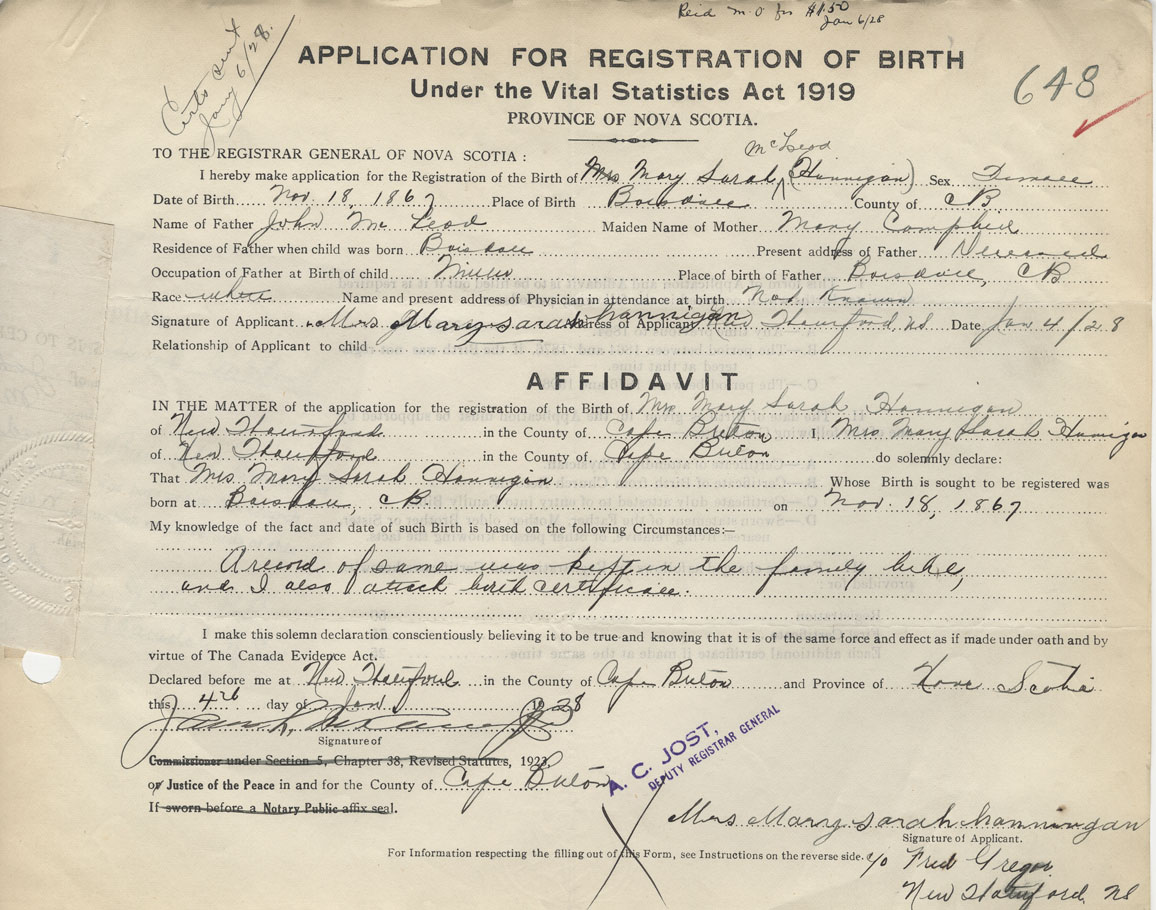 Recd M.O for $1.50
Jan 6/28
Certs sent
Jany 6/28.
APPLICATION FOR REGISTRATION OF BIRTH
Under the Vital Statistics Act 1919
PROVINCE OF NOVA SCOTIA.
648
TO THE REGISTRAR GENERAL OF NOVA SCOTIA :
McLeod
I hereby make application for the Registration of the Birth of Mrs Mary Sarah (Hannigan) Sex Female
Date of Birth Nov. 18, 1867 Place of Birth Boisdale County of CB.
Name of Father John McLeod Maiden Name of Mother Mary Campbell
Residence of Father when child was born Boisdale Present address of Father Deceased
Occupation of Father at Birth of child Miller Place of birth of Father Boisdale, CB
Race white Name and present address of Physician in attendance at birth Not Known
Signature of Applicant Mrs. Mary sarah hannigan Address of Applicant Date Jan 4/28
Relationship of Applicant to child
AFFIDAVIT
IN THE MATTER of the application for the registration of the Birth of Mrs Mary Sarah Hannigan
of New in the County of Cape Breton I Mrs Mary Sarah Hannigan
of New in the County of Cape Breton do solemnly declare:
That Mrs. Mary Sarah Hannigan Whose Birth is sought to be registered was
born at Boisdale, CB on Nov. 18, 1867
My knowledge of the fact and date of such Birth is based on the following Circumstances:—
A record of same was kept in the family bible,
and I also attach birth certificate.
I make this solemn declaration conscientiously believing it to be true and knowing that it is of the same force and effect as if made under oath and by
virtue of The Canada Evidence Act.
Declared before me at New in the County of Cape Breton and Province of Nova Scotia
this 4th day of Jan 1928
Signature of
Commissioner under Section 5, Chapter 38, Revised Statutes, 1923,
or Justice of the Peace in and for the County of Cape Breton
If sworn before a Notary Public affix seal.
A. C. JOST,
DEPUTY REGISTRAR GENERAL
Mrs Marry sarah hanningan
Signature of Applicant.
For Information respecting the filling out of this Form, see Instructions on the reverse side.
c/o Fred Gregor
New NS